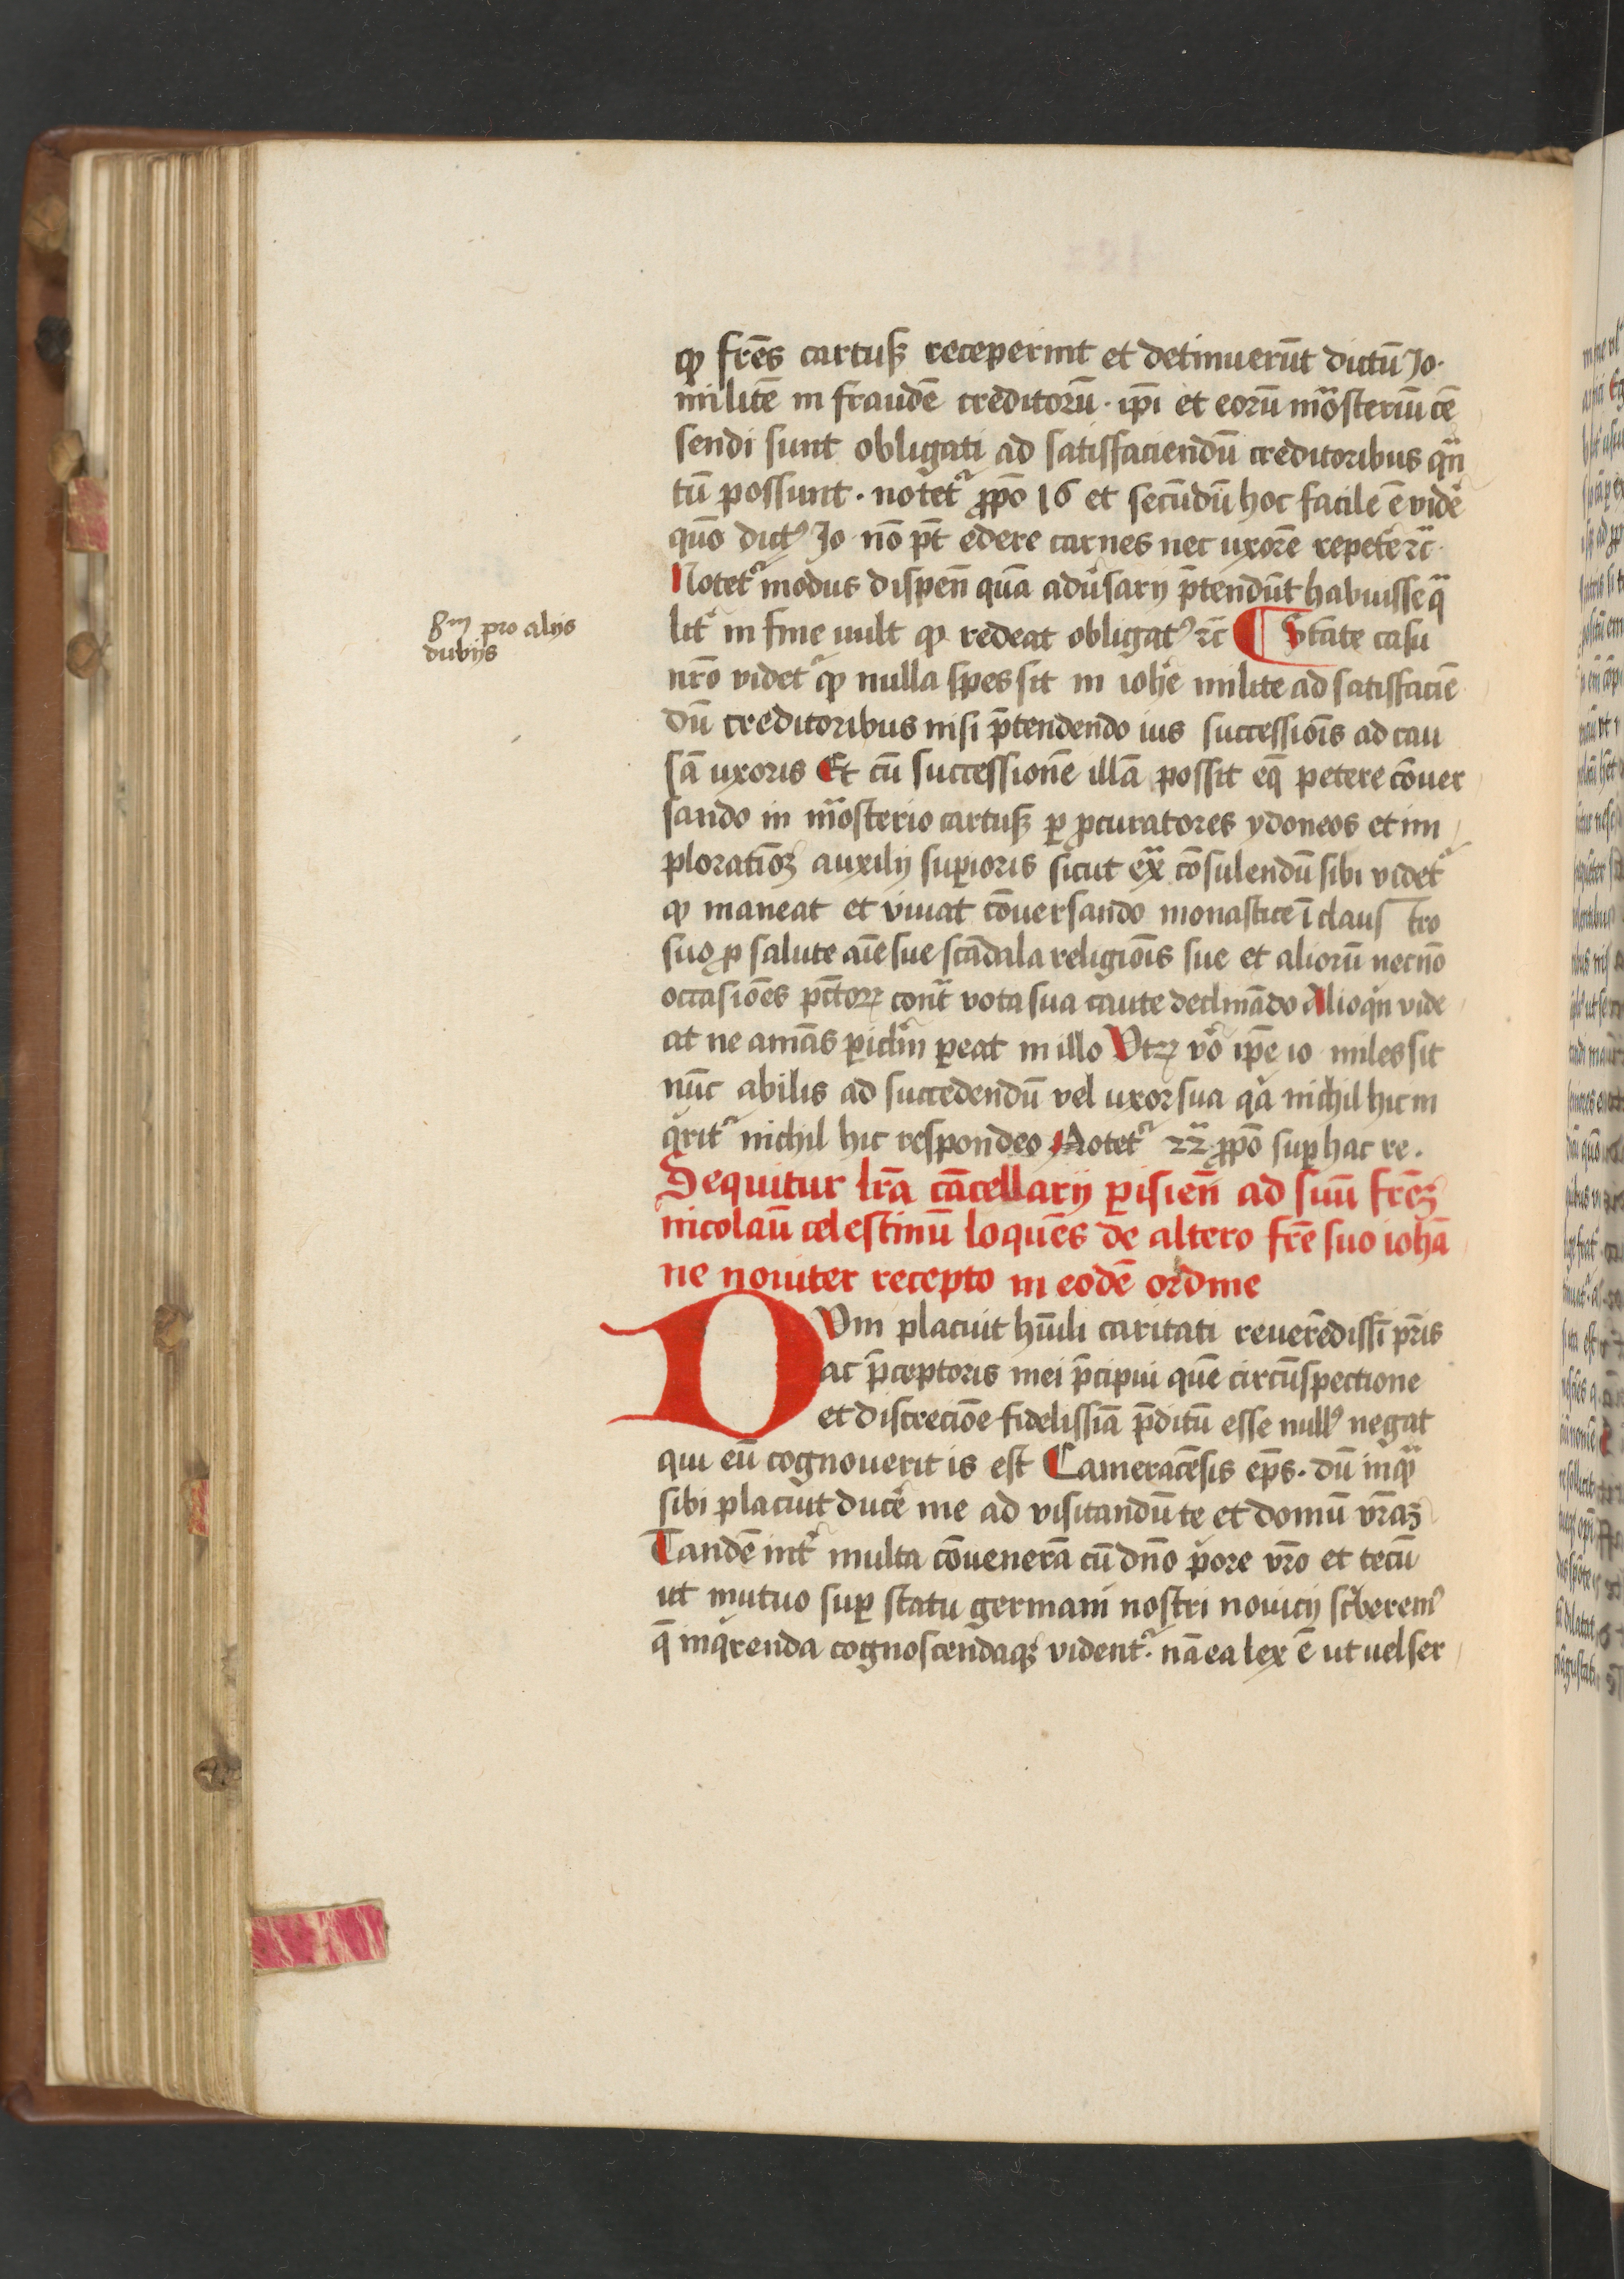 ꝙ fr̄es cartuß receperint et detinuerūt dictū Jo·
militē in fraudē creditorū · ip̄i et eorū mͣosteriū cē
sendi sunt obligati ad satisfaciendū creditoribus qͣn
tū possunt · notetᷣ ꝓpō 16 et secūdū hoc facile ē vidē
quō dictꝰ Jo nō pt̄ edere carnes nec uxorē repetē ⁊c̄·
Notetᷣ modus dispen̄ quā adu̓sarij p̄tendūt habuisse qͣ
lit̓ in fine uult ꝙ redeat obligatꝰ ⁊c̄ ¶ Stāte casu
8m pro alijs
dubijs
nr̄o videtᷣ ꝙ nulla spes sit in ioh̄e milite ad satisfaciē
dū creditoribus nisi p̄tendendo ius successiōis ad cau
sā uxoris Et cū successionē illā possit eq̄ petere cōuer
sando in mͣosterio cartuß ꝑ ꝓcuratores ydoneos et im
ploratiōꝫ auxilij suꝑioris sicut exͣ cōsulendū sibi videtᷣ
ꝙ maneat et viuat cōuersando monastice ī claus tro
suo ꝓ salute aīe sue scādala religiōis sue et aliorū necnō
occasiōes pctōꝝ contͣ vota sua caute declinādo Alioqͥn vide
at ne amās ꝑiclm̄ ꝑeat in illo Vtꝝ vͦo ip̄e io miles sit
nūc abilis ad succedendū vel uxor sua qͥa nichil hic in
qͥritᷣ nichil hic respondeo Notetᷣ 22ͣ ꝓpō suꝑ hac re ·
Sequitur lr̄a cācellarij ꝑisien̄ ad suū fr̄eꝫ
nicolaū celestinū loquēs de altero fr̄e suo iohā
ne nouiter recepto in eodē ordine
DVm placuit hūili caritati reuerēdissī pr̄is
ac p̄ceptoris mei p̄cipui quē circūspectione
et discreciōe fidelissīa p̄ditū esse nullꝰ negat
qui eū cognouerit is est Cameracēsis ep̄s · dū inqͣ
sibi placuit ducē me ad visitandū te et domū vr̄aꝫ
Tandē int̓ multa cōuenerā cū dn̄o pͥore vr̄o et tecū
ut mutuo suꝑ statu germani nostri nouicij scͥberemꝰ
q̄ inqͥrenda cognoscendaqꝫ videntᷣ · nā ea lex ē ut uel ser